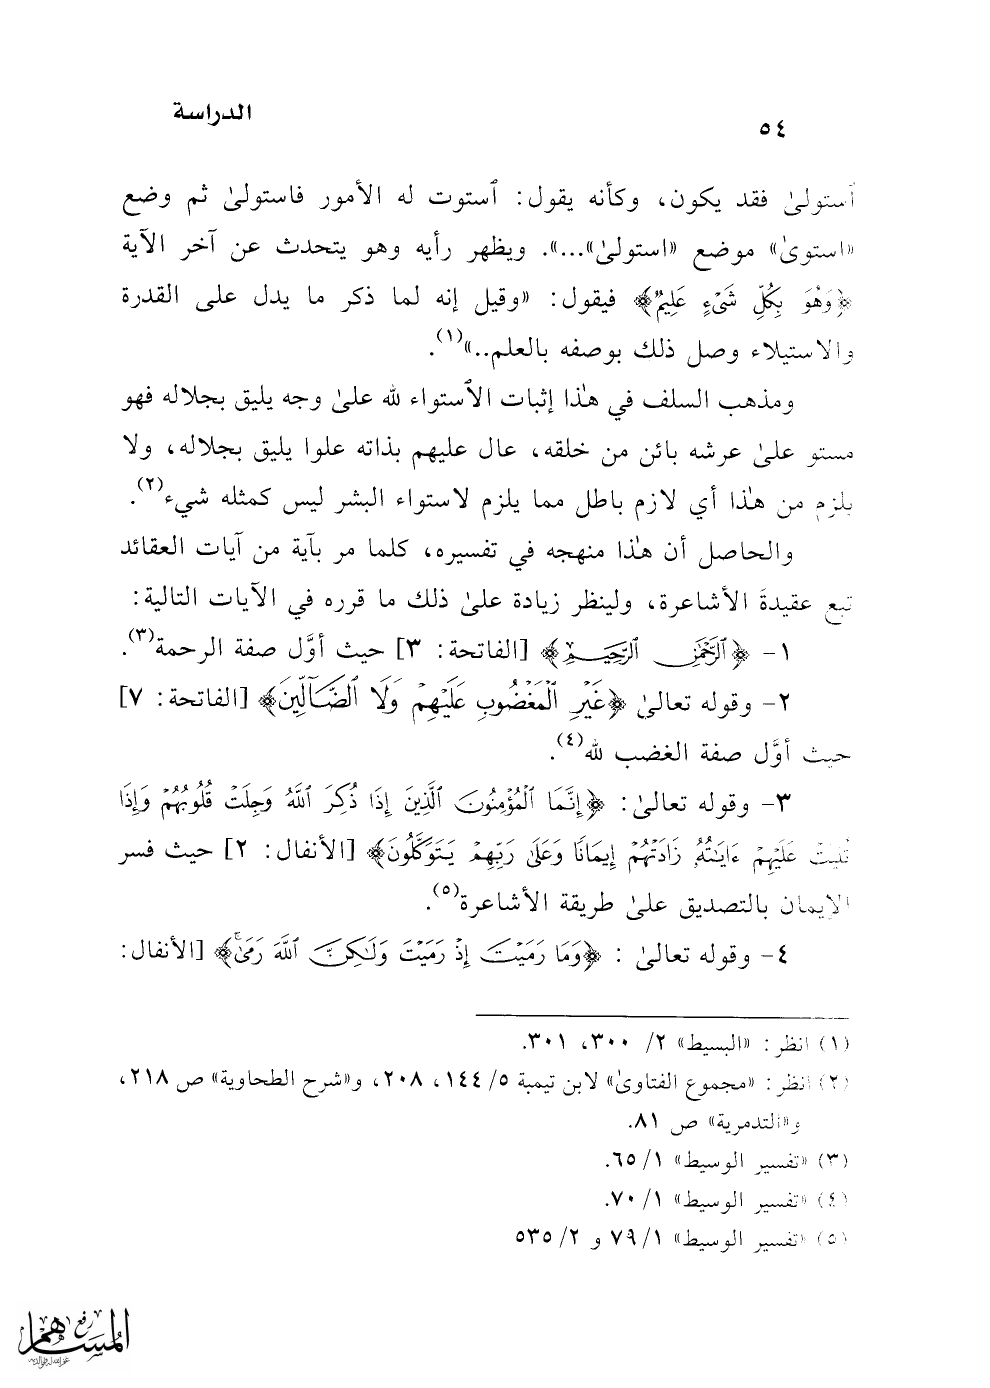 الدراسة
٥٤
ٱستولىٰ فقد يكون، وكأنه يقول: ٱستوت له الأمور فاستولىٰ ثم وضع
«استوىٰ» موضع «استولىٰ»...». ويظهر رأيه وهو يتحدث عن آخر الآية
﴿وَهُوَ بِكُلِّ شَىْءٍ عَلِيمٌ﴾ فيقول: «وقيل إنه لما ذكر ما يدل على القدرة
والاستيلاء وصل ذلك بوصفه بالعلم..»(١).
ومذهب السلف في هٰذا إثبات الٱستواء لله علىٰ وجه يليق بجلاله فهو
مستو علىٰ عرشه بائن من خلقه، عال عليهم بذاته علوا يليق بجلاله، ولا
يلزم من هٰذا أي لازم باطل مما يلزم لاستواء البشر ليس كمثله شيء(٢).
والحاصل أن هٰذا منهجه في تفسيره، كلما مر بآية من آيات العقائد
تبع عقيدةَ الأشاعرة، ولينظر زيادة علىٰ ذلك ما قرره في الآيات التالية:
١- ﴿ٱلرَّحْمَٰنِ ٱلرَّحِيمِ﴾ [الفاتحة: ٣] حيث أوَّل صفة الرحمة(٣).
٢- وقوله تعالىٰ ﴿غَيْرِ ٱلْمَغْضُوبِ عَلَيْهِمْ وَلَا ٱلضَّآلِّينَ﴾ [الفاتحة: ٧]
حيث أوَّل صفة الغضب لله(٤).
٣- وقوله تعالىٰ: ﴿إِنَّمَا ٱلْمُؤْمِنُونَ ٱلَّذِينَ إِذَا ذُكِرَ ٱللَّهُ وَجِلَتْ قُلُوبُهُمْ وَإِذَا
تُلِيَتْ عَلَيْهِمْ ءَايَٰتُهُۥ زَادَتْهُمْ إِيمَانًا وَعَلَىٰ رَبِّهِمْ يَتَوَكَّلُونَ﴾ [الأنفال: ٢] حيث فسر
الإيمان بالتصديق علىٰ طريقة الأشاعرة(٥).
٤- وقوله تعالىٰ : ﴿وَمَا رَمَيْتَ إِذْ رَمَيْتَ وَلَٰكِنَّ ٱللَّهَ رَمَىٰ﴾ [الأنفال:
(١) انظر: «البسيط» ٢/ ٣٠٠، ٣٠١.
(٢) انظر: «مجموع الفتاوىٰ» لابن تيمية ٥/ ١٤٤، ٢٠٨، و«شرح الطحاوية» ص ٢١٨،
و«التدمرية» ص ٨١.
(٣) «تفسير الوسيط» ١/ ٦٥.
(٤) «تفسير الوسيط» ١/ ٧٠.
(٥) «تفسير الوسيط» ١/ ٧٩ و ٢/ ٥٣٥
رفع
المساهم